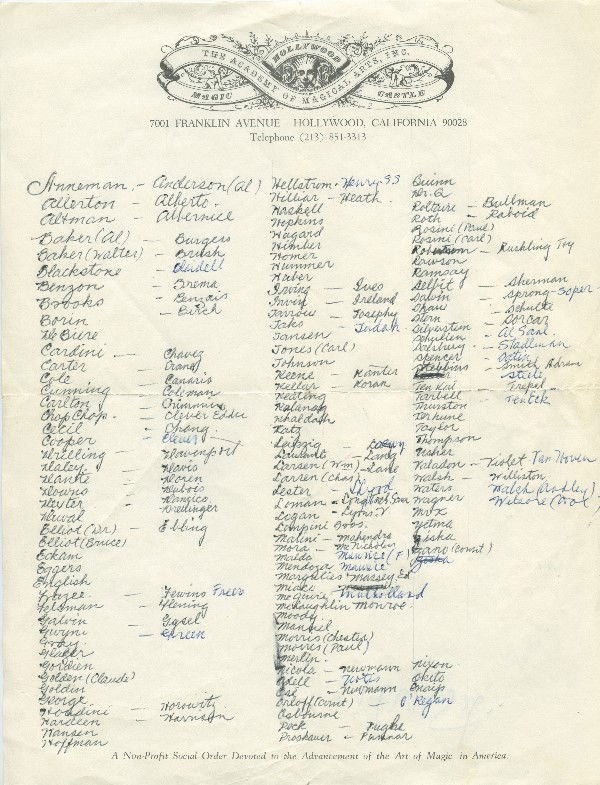 HOLLYWOOD
THE ACADEMY OF MAGICAL ARTS, INC.
MAGIC CASTLE
7001 FRANKLIN AVENUE HOLLYWOOD, CALIFORNIA 90028
Telephone (213) 851-3313
Anneman - Anderson (Al)
Allerton - Alberto
Altman - Albenice
Baker (Al) - Burgess
Baker (Walter) - Brush
Blackstone - Bardell
Benzon - Brema
Brooks - Benzais
Borin - Birch
De Biere
Cardini - Chavez
Carter
Cole - Canaris
Cunning - Coleman
Carlton
Chop Chop - Clever Eddie
Cecil - Chang
Cooper - Clever
Drilling - Davenport
Daley - Davis
Dante - Doren
Downs - Dubois
Dexter
Duval
Elliot (Dr) - Ebbing
Elliot (Bruce)
Eckam
Eggers
English
Fewins Freer
Feldman - Fleming
Galvin
Gwynn - Green
Gray
Golden (Claude)
Goldin
George
Houdini - Horowitz
Hardeen - Harrison
Hansen
Hoffman
Hellstrom - Henry S.S
Hilliar - Heath
Haskell
Hopkins
Hagard
Himber
Homer
Hummer
Huber
Irving - Ives
Irvin - Ireland
Jarrow - Josephy
Jaks - Judah
Jansen
Jones (Carl)
Johnson
Keene - Kanter
Kellar - Koran
Keating
Kalanag
Khaldah
Katz
Leipzig
Laurant - Lang
Larsen (Wm) - Lane
Larsen (Chas)
Lester
Loman
Logan - Lyons, V
Lompini Bros.
Malini - Mahendra
Mora - McNichols
Maldo - Maurice (F)
Mendoza Maurice
Margeties Massey Ed
McGuire Mulholland
McLaughlin Monroe
Moody
Manuel
Morris (Chester)
Morris (Paul)
Merlin
Nicola - Newmann Nixon
Odell Okito
Newmann
Orloff (Count) - O'Regan
Osbourne
Peck - Pughe
Proskauer
Quinn
Dr. Q
Roltaire - Bullman
Roth - Raboid
Rosini (Paul)
Rosini (Carl)
Rushling Toy
Rawson
Ramsay
Selbit - Sherman
Sawin
Shaw - Schulte
Stern - Dorcar
Silverstein - Al Saal
Schulien - Stadelman
Spencer
Smith Adrian
Steele
Ten Kai - Trepel
Tarbell
Thurston
Terhune
Taylor
Thompson
Usher
Valadon - Violet Van Hoven
Walsh - Williston
Waters Walsh (Audley)
Wagner
Yetma
Ziska
A Non-Profit Social Order Devoted to the Advancement of the Art of Magic in America.